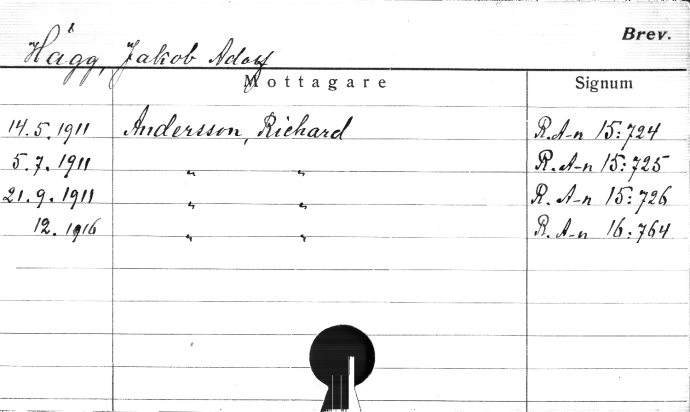 Brev.
Hägg, Jakob Adolf
Mottagare Signum
14.5.1911 Andersson, Richard R. A-n 15:724
5.7.1911 " " R. A-n 15:725
21.9.1911 " " R. A-n 15:726
12.1916 " " R. A-n 16:764